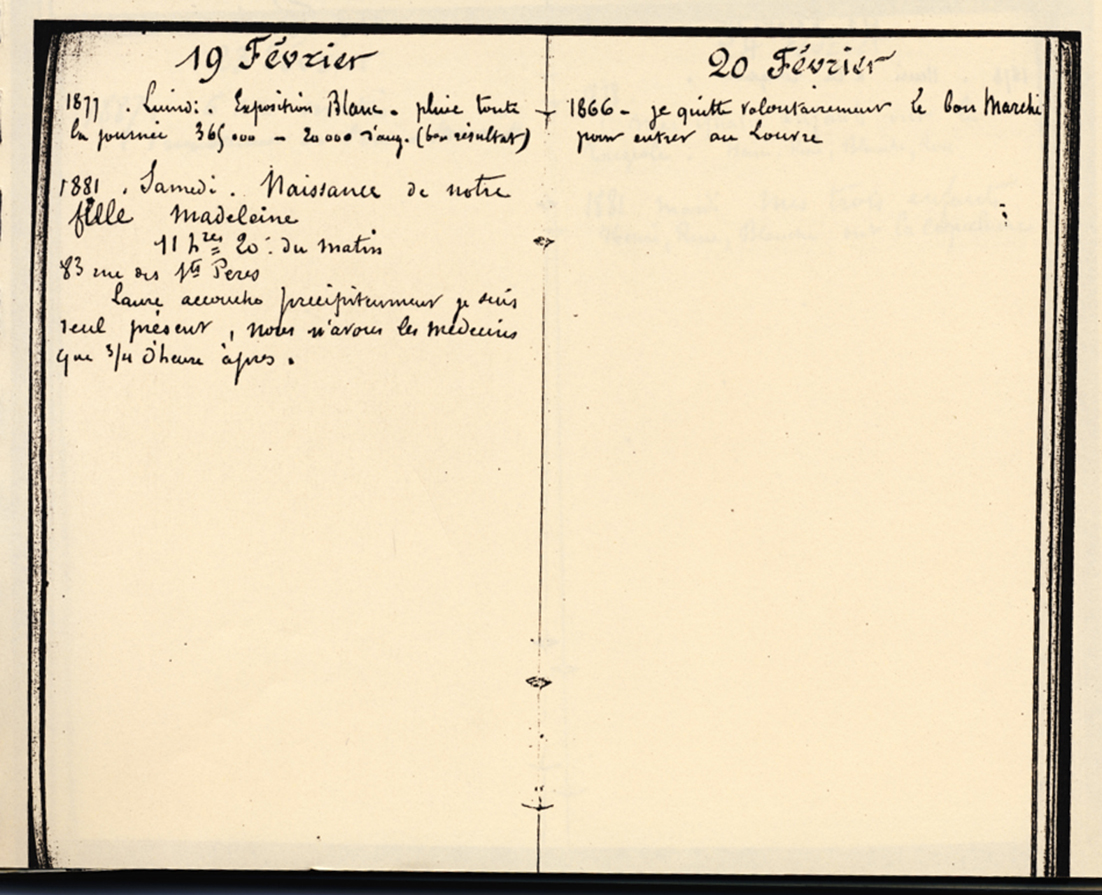 19 Février
1877. Lundi. Exposition Blanc. pluie toute
la journée 365.000 – 20000 d'aug. (bon résultat)
1881. Samedi. Naissance de notre
fille Madeleine
11 hres 20 du matin
83 rue des Sts Peres
Laure accoucha précipitemment je suis
seul présent, nous n'avons les médecins
que 3/4 d'heure après.
20 Février
1866 – je quitte volontairement le bon Marché
pour entrer au Louvre